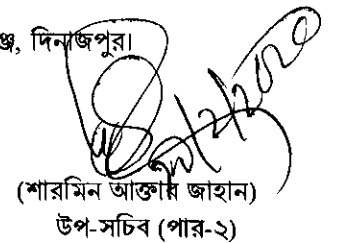 ঞ্জ, দিনাজপুর।
(শারমিন আক্তার জাহান)
উপ-সচিব (পার-২)